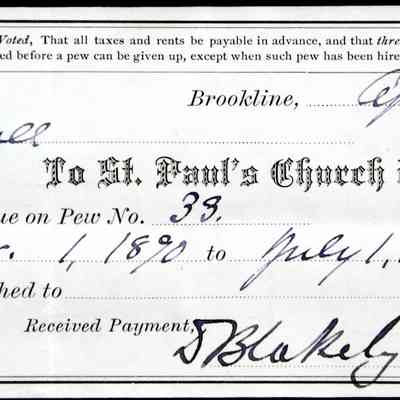 Voted, That all taxes and rents be payable in advance, and that thre
ed before a pew can be given up, except when such pew has been hire
Brookline, Ap
ell
To St. Paul's Church i
ue on Pew No. 33.
r. 1, 1890 to July 1,
hed to
Received Payment,
D Blakely